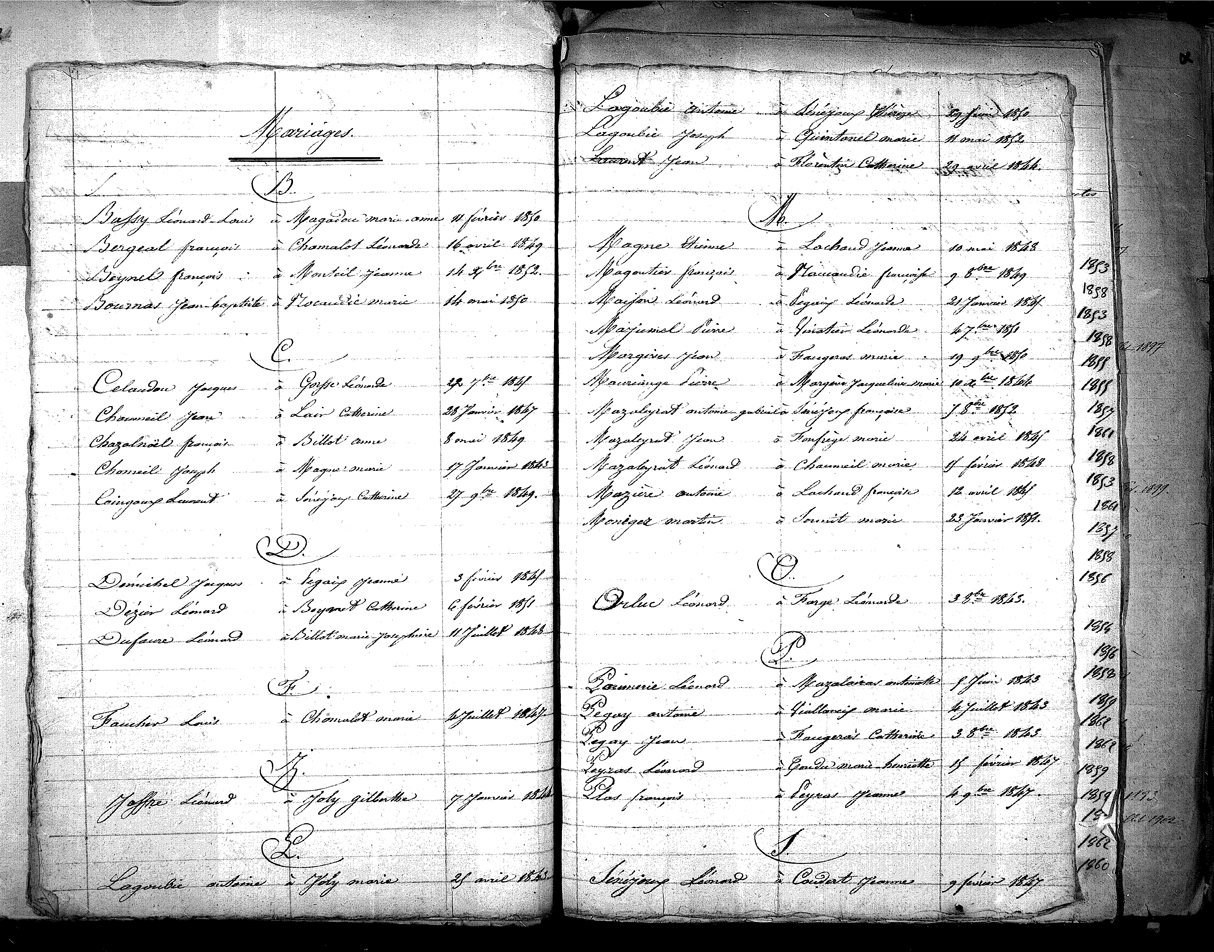 Mariages.
B.
Bassy Léonard-Louis à Magadou marie-anne 11 février 1850
Bergeal françois à Chamalot Léonarde 16 avril 1849
Beynel françois à Monteil Jeanne 14 Xbre 1852.
Bournas Jean-baptiste à Plocaudie marie 14 mai 1850
C.
Celaudon Jacques à Gorsse Léonarde 22 7bre 1845
Chaumeil Jean à Lair Catherine 28 Janvier 1847
Chazalnoël françois à Billot anne 8 mai 1849
Chomeil Joseph à Magne marie 17 Janvier 1843
Coingoux Laurent à Sénéjoux Catherine 27 9bre 1849.
D.
Demichel Jacques à Pegaix Jeanne 3 février 1845
Dézier Léonard à Beynet Catherine 6 février 1851
Dufaure Léonard à Billot marie-Josephine 11 Juillet 1848
F.
Faucher Louis à Chamalot marie 4 Juillet 1847
J.
Joffre Léonard à Joly gilberthe 7 Janvier 1844
L.
Lagoubie antoine à Joly marie 25 avril 1843
Lagoubie antoine à Sénéjoux 29 1850
Lagoubie Joseph à Quintanel marie 11 mai 1852
Laurent Jean à Florentin Catherine 29 avril 1844.
M.
Magne Etienne à Lachaud Jeanne 10 mai 1843
Magoutier françois à Plaucaudie françoise 9 8bre 1849
Maison Léonard à Pegaix Léonarde 21 Janvier 1845
Majumel Pierre à Vinatier Léonarde 4 7bre 1851
Margives Jean à Faugeras marie 19 9bre 1850
Mauriange Pierre à Jacqueline-marie 10 Xbre 1844
Mazaleyrat antoine-gabriel à Sénéjoux françoise 7 8bre 1852.
Mazaleyrat Jean à Fonfrège marie 24 avril 1845
Mazaleyrat Léonard à Chaumeil marie 15 février 1848
Mazière antoine à Lachaud françoise 12 avril 1845
Monégez martin à marie 23 Janvier 1851.
O.
Orluc Léonard à Farge Léonarde 3 8bre 1843.
P.
Paumerie Léonard à Mazaleiras antoinette 5 Juin 1843
Pegay antoine à Viallaneix marie 4 Juillet 1843
Pegay Jean à Faugeras Catherine 3 8bre 1843
Peyras Léonard à Condu marie-henriette 15 février 1847
Plas françois à Peyras Jeanne 4 9bre 1847.
S
Sénéjoux Léonard à Coudert Jeanne 9 février 1847
1853
1858
1853
1858
1855
1855
1857
1861
1858
1853
1861
1857
1858
1856
1854
1856
1858
1859
1862
1862
1859
1859
1862
1860
1897
1899.
1902